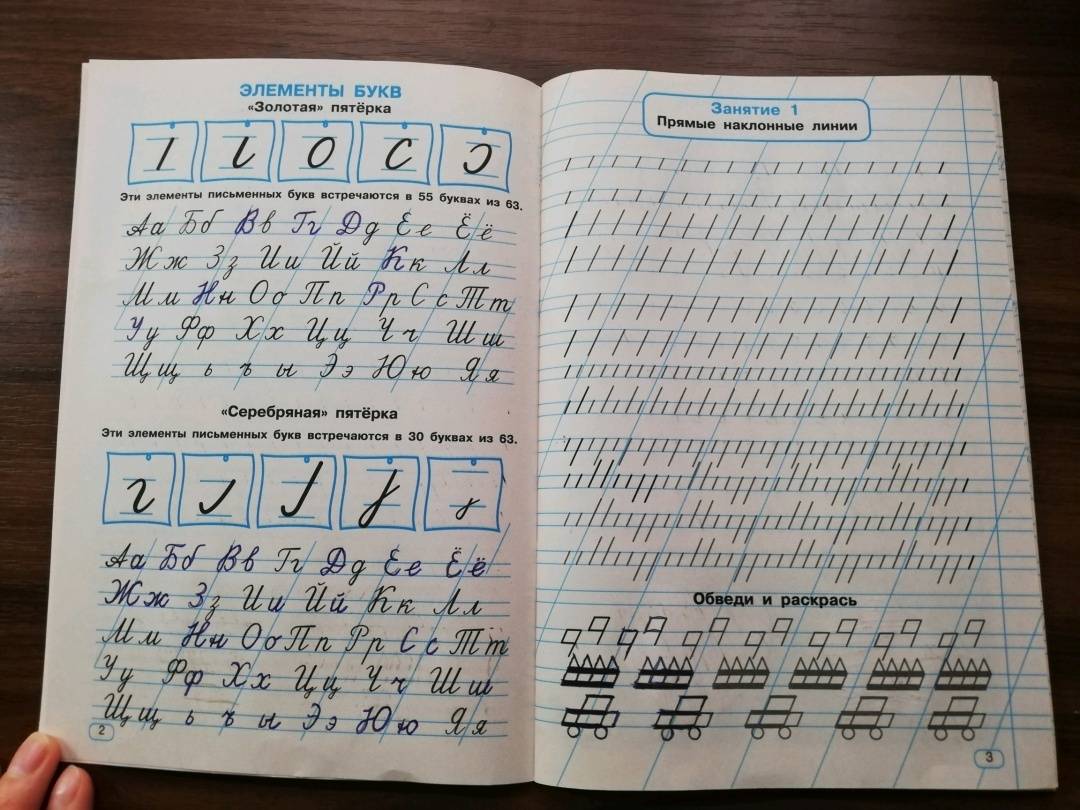 ЭЛЕМЕНТЫ БУКВ
«Золотая» пятёрка
Эти элементы письменных букв встречаются в 55 буквах из 63.
Аа Бб Вв Гг Дд Ее Ёё
Жж Зз Ии Йй Кк Лл
Мм Нн Оо Пп Рр Сс Тт
Уу Фф Хх Цц Чч Шш
Щщ ь ъ ы Ээ Юю Яя
«Серебряная» пятёрка
Эти элементы письменных букв встречаются в 30 буквах из 63.
Аа Бб Вв Гг Дд Ее Ёё
Жж Зз Ии Йй Кк Лл
Мм Нн Оо Пп Рр Сс Тт
Уу Фф Хх Цц Чч Шш
Щщ ь ъ ы Ээ Юю Яя
2
Занятие 1
Прямые наклонные линии
Обведи и раскрась
3